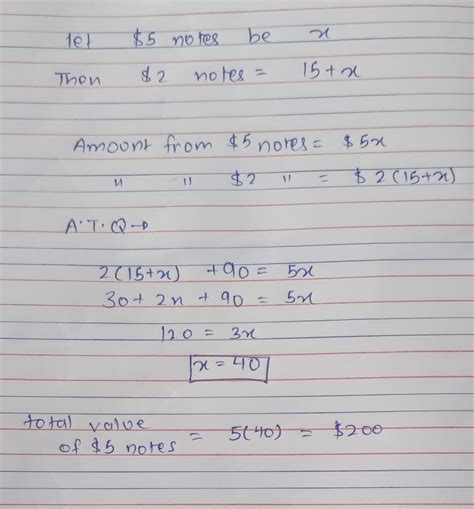 let $5 notes be x
Then $2 notes = 15+x
Amount from $5 notes = $5x
" " $2 " = $2(15+x)
A.T.Q→
2(15+x) +90 = 5x
30+2x+90 = 5x
120 = 3x
x = 40
total value
of $5 notes = 5(40) = $200